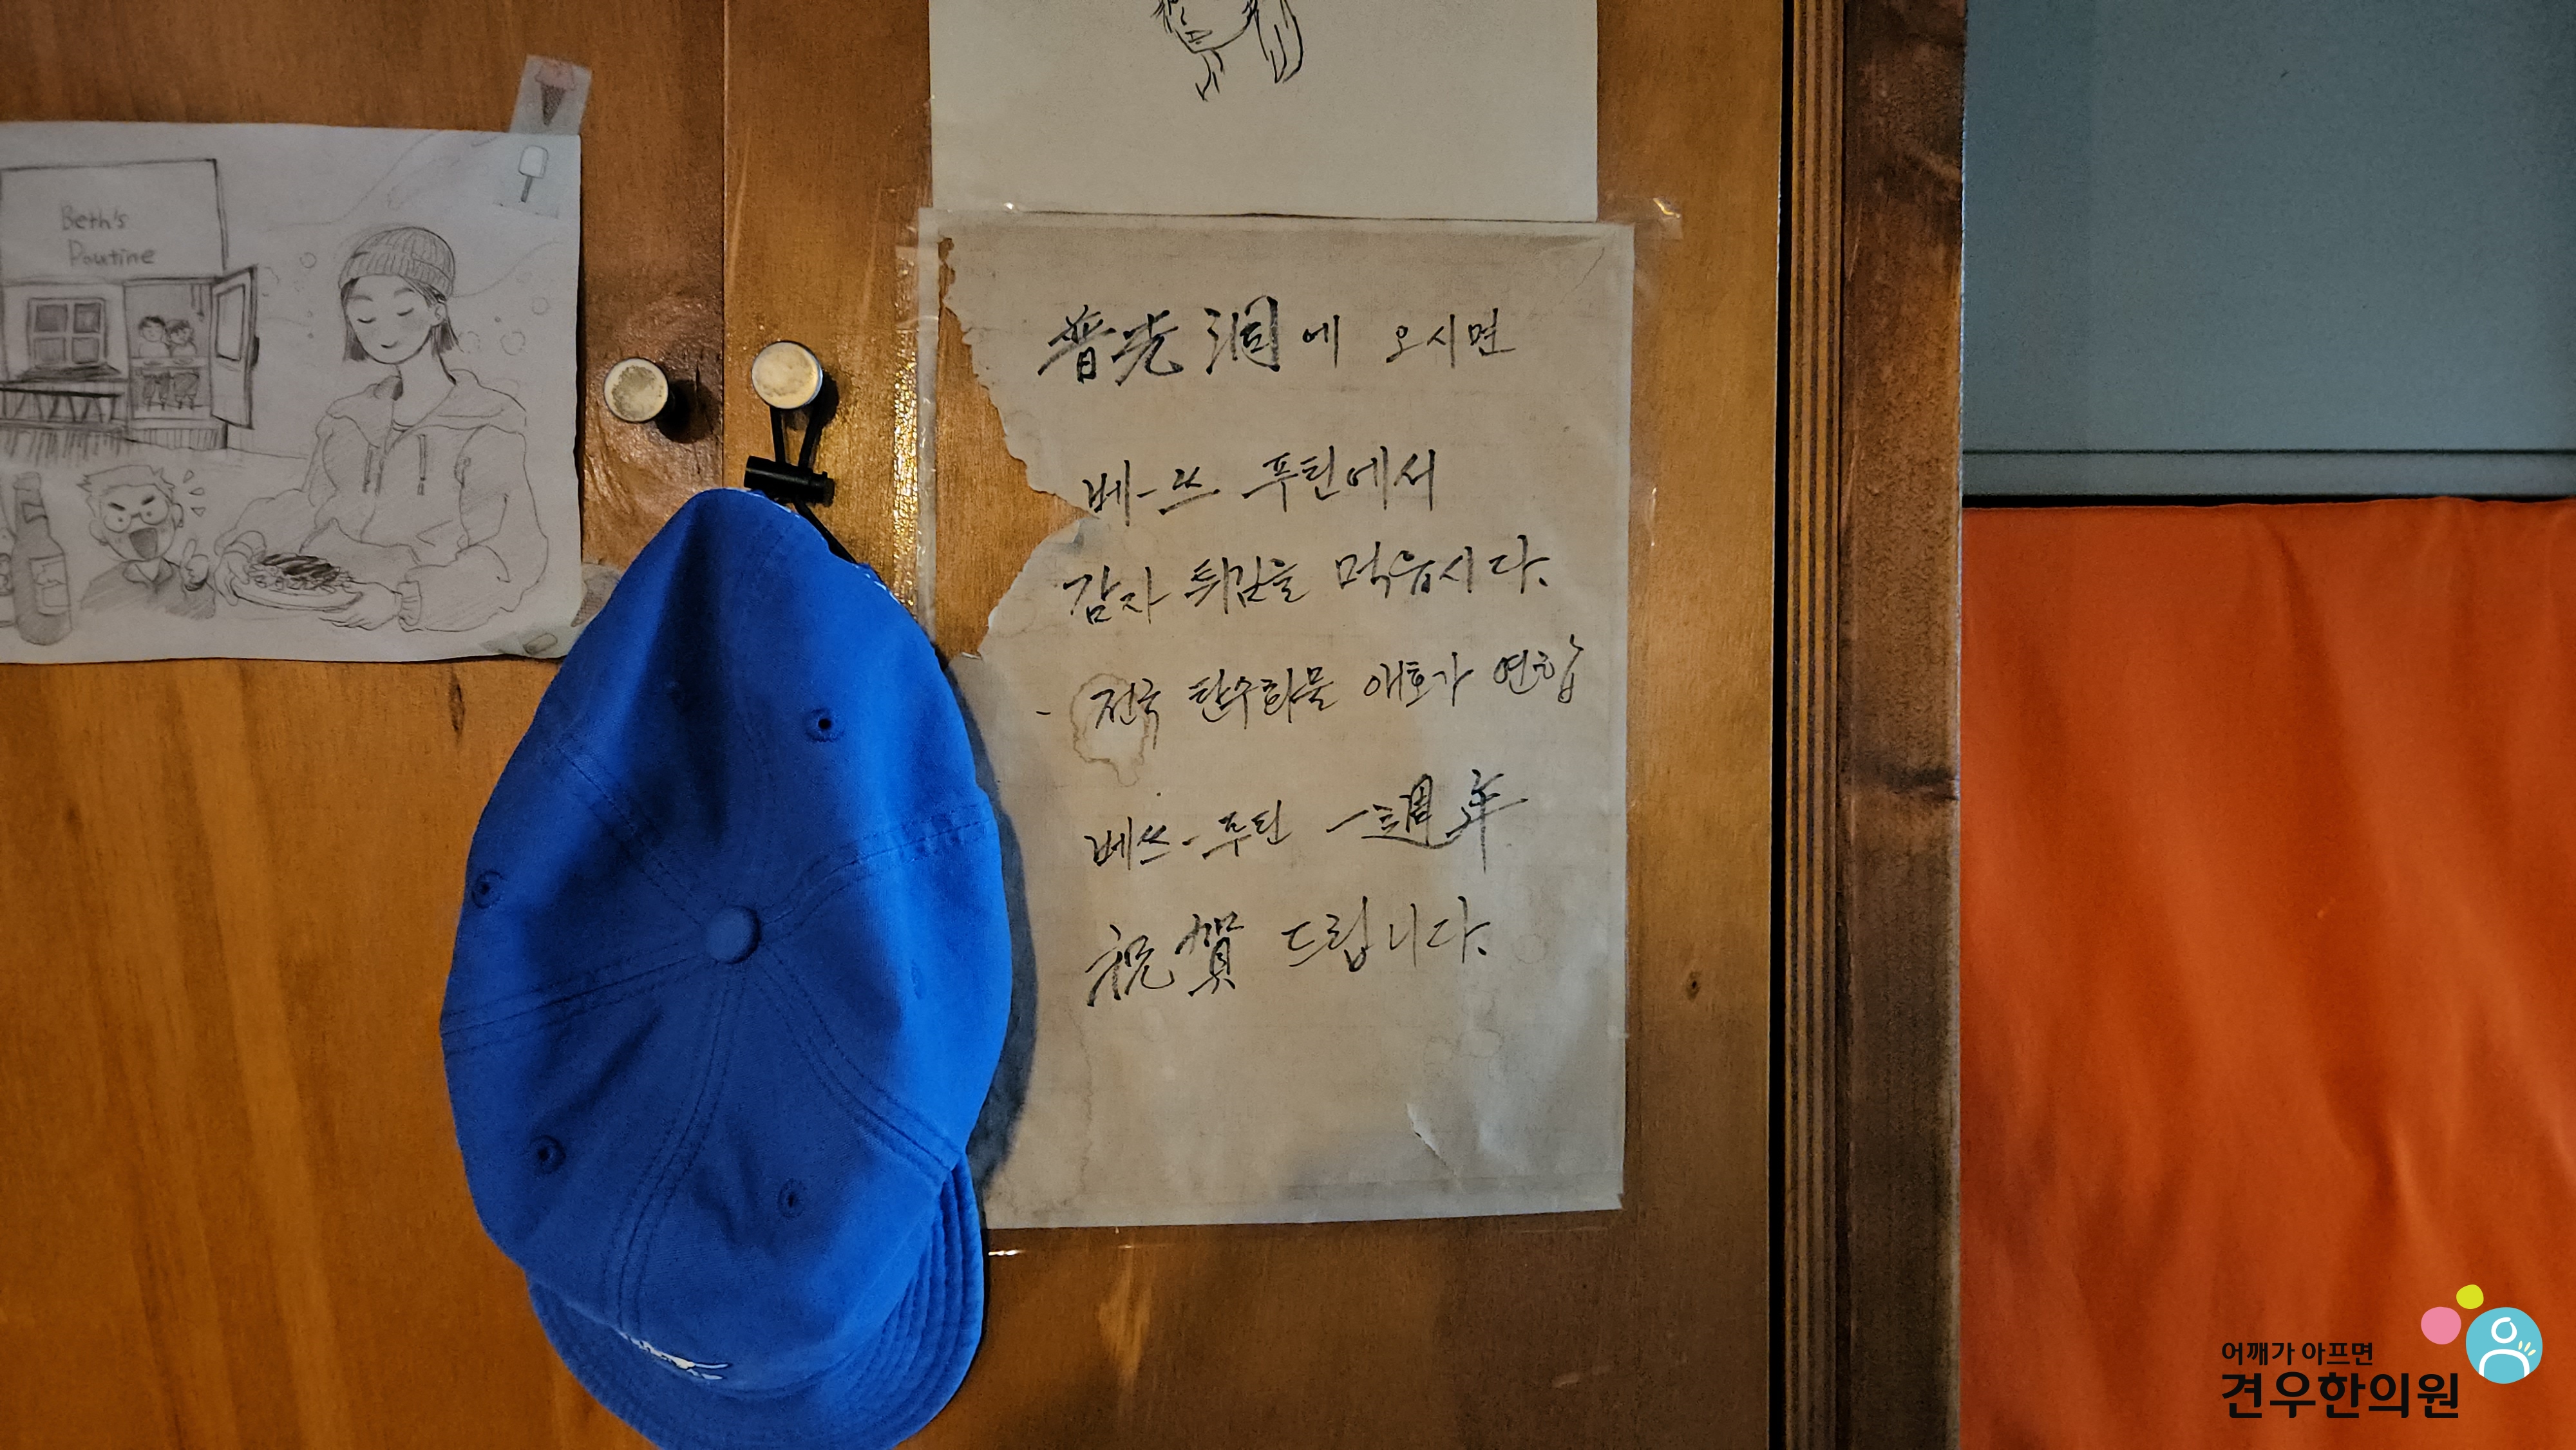 Beth's
Poutine
普光洞에 오시면
베-쓰 푸틴에서
감자 튀김을 먹읍시다.
- 전국 탄수화물 애호가 연합
베쓰-푸틴 一週年
祝賀 드립니다.
어깨가 아프면
견우한의원